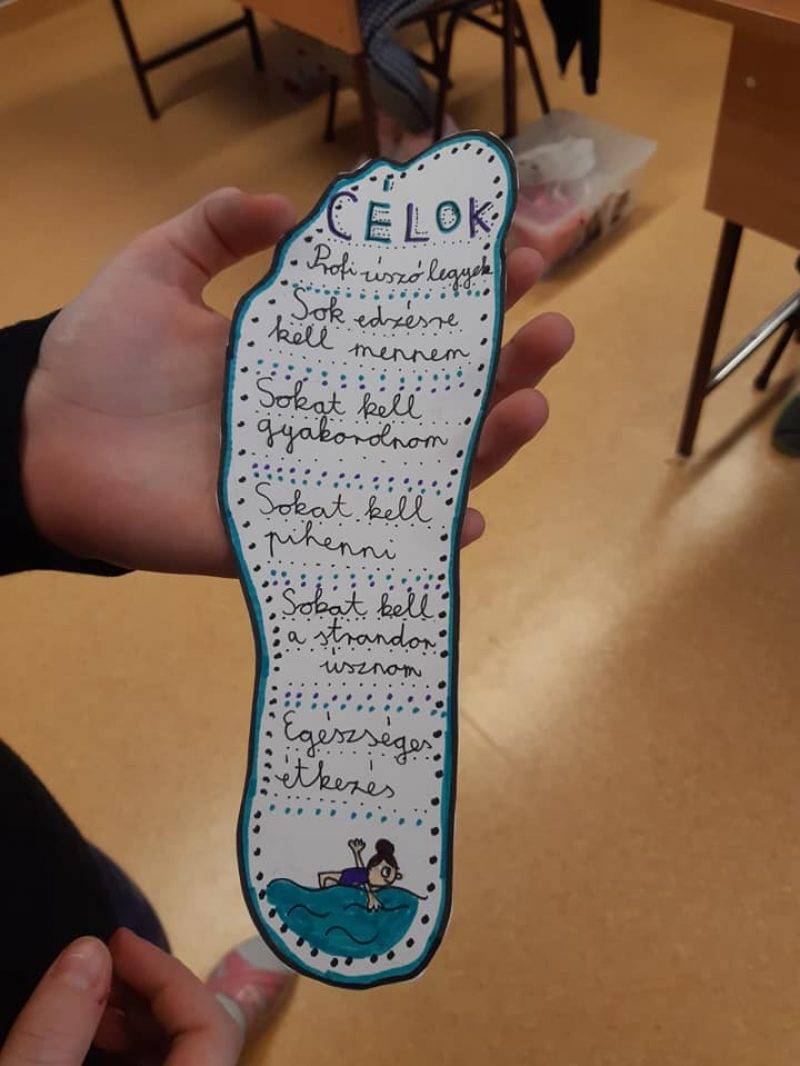 CÉLOK
Profi úszó legyek
Sok edzésre
kell mennem
Sokat kell
gyakorolnom
Sokat kell
pihenni
Sokat kell
a strandon
úsznom
Egészséges
étkezés